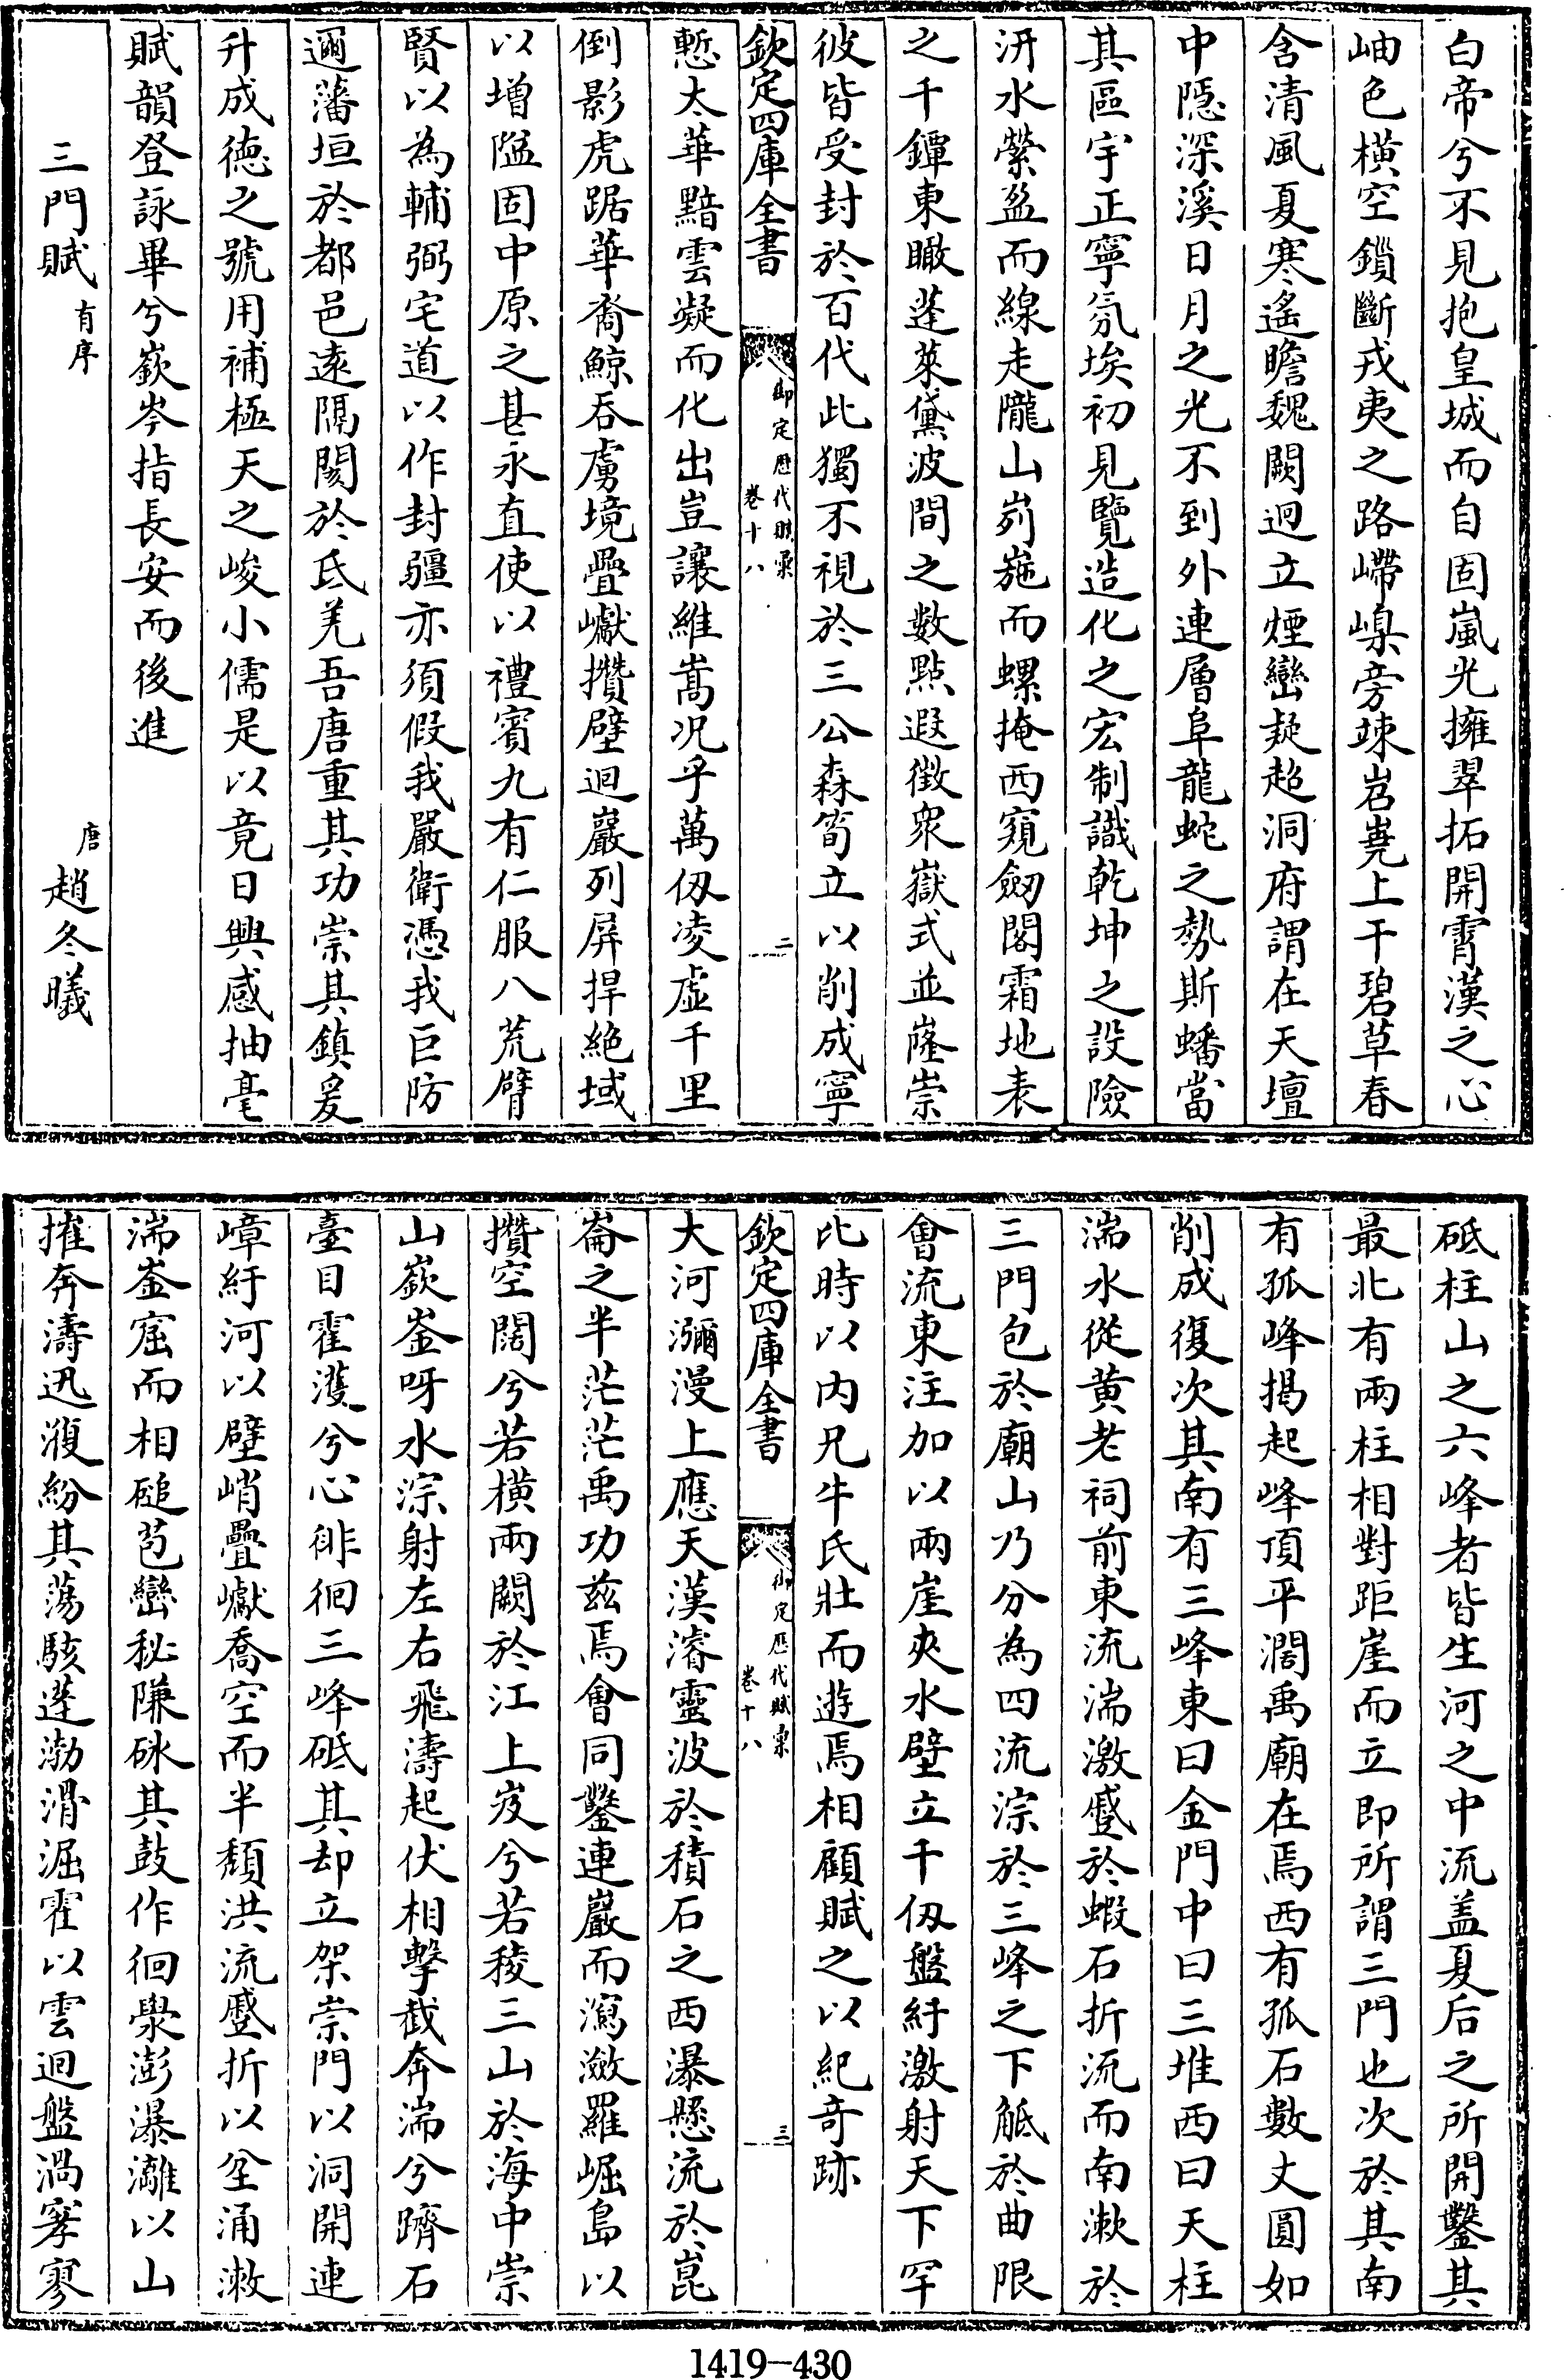 白帝兮不見抱皇城而自固嵐光擁翠拓開霄漢之心
岫色橫空鎻斷戎夷之路嵽嵲旁竦岧嶤上干碧草春
含清風夏寒遙瞻魏闕迥立煙巒疑超洞府謂在天壇
中隱深溪日月之光不到外連層阜龍蛇之勢斯蟠當
其區宇正寧氛埃初見覽造化之宏制識乾坤之設險
汧水縈盈而線走隴山峛崺而螺掩西窺劒閣霜地表
之千鐔東瞰蓬萊黛波間之數點遐徵衆嶽式並隆崇
彼皆受封於百代此獨不視於三公森筍立以削成寧
欽定四庫全書
御定歷代賦彙
卷十八
二
慙太華黯雲凝而化出豈讓維嵩况乎萬仭凌虛千里
倒影虎踞華裔鯨吞虜境疊巘攢壁迴巖列屏捍絶域
以增隘固中原之甚永直使以禮賓九有仁服八荒臂
賢以為輔弼宅道以作封疆亦須假我嚴衛憑我巨防
邇藩垣於都邑遠隔閡於氐羌吾唐重其功崇其鎮爰
升成德之號用補極天之峻小儒是以竟日興感抽毫
賦韻登詠畢兮嶔岑指長安而後進
三門賦 有序 唐 趙冬曦
砥柱山之六峰者皆生河之中流盖夏后之所開鑿其
最北有兩柱相對距崖而立即所謂三門也次於其南
有孤峰揭起峰頂平濶禹廟在焉西有孤石數丈圓如
削成復次其南有三峰東曰金門中曰三堆西曰天柱
湍水從黄老祠前東流湍激蹙於蝦石折流而南漱於
三門包於廟山乃分為四流淙於三峰之下觝於曲隈
會流東注加以兩崖夾水壁立千仭盤紆激射天下罕
比時以内兄牛氏壯而遊焉相顧賦之以紀奇跡
欽定四庫全書
御定歷代賦彙
卷十八
三
大河瀰漫上應天漢濬靈波於積石之西瀑懸流於崑
崙之半茫茫禹功兹焉會同鑿連巖而瀉瀲羅崛島以
攢空闊兮若橫兩闕於江上岌兮若稜三山於海中崇
山嶔崟呀水淙射左右飛濤起伏相擊截奔湍兮躋石
臺目霍濩兮心徘徊三峰砥其却立架崇門以洞開連
嶂紆河以壁峭疊巘喬空而半頹洪流蹙折以坌涌漱
湍崟窟而相磓苞巒秘隒砯其鼓作徊澩澎瀑灕以山
摧奔濤迅澓紛其蕩駭蓬渤滑淈霍以雲迴盤渦穼寥
1419-430